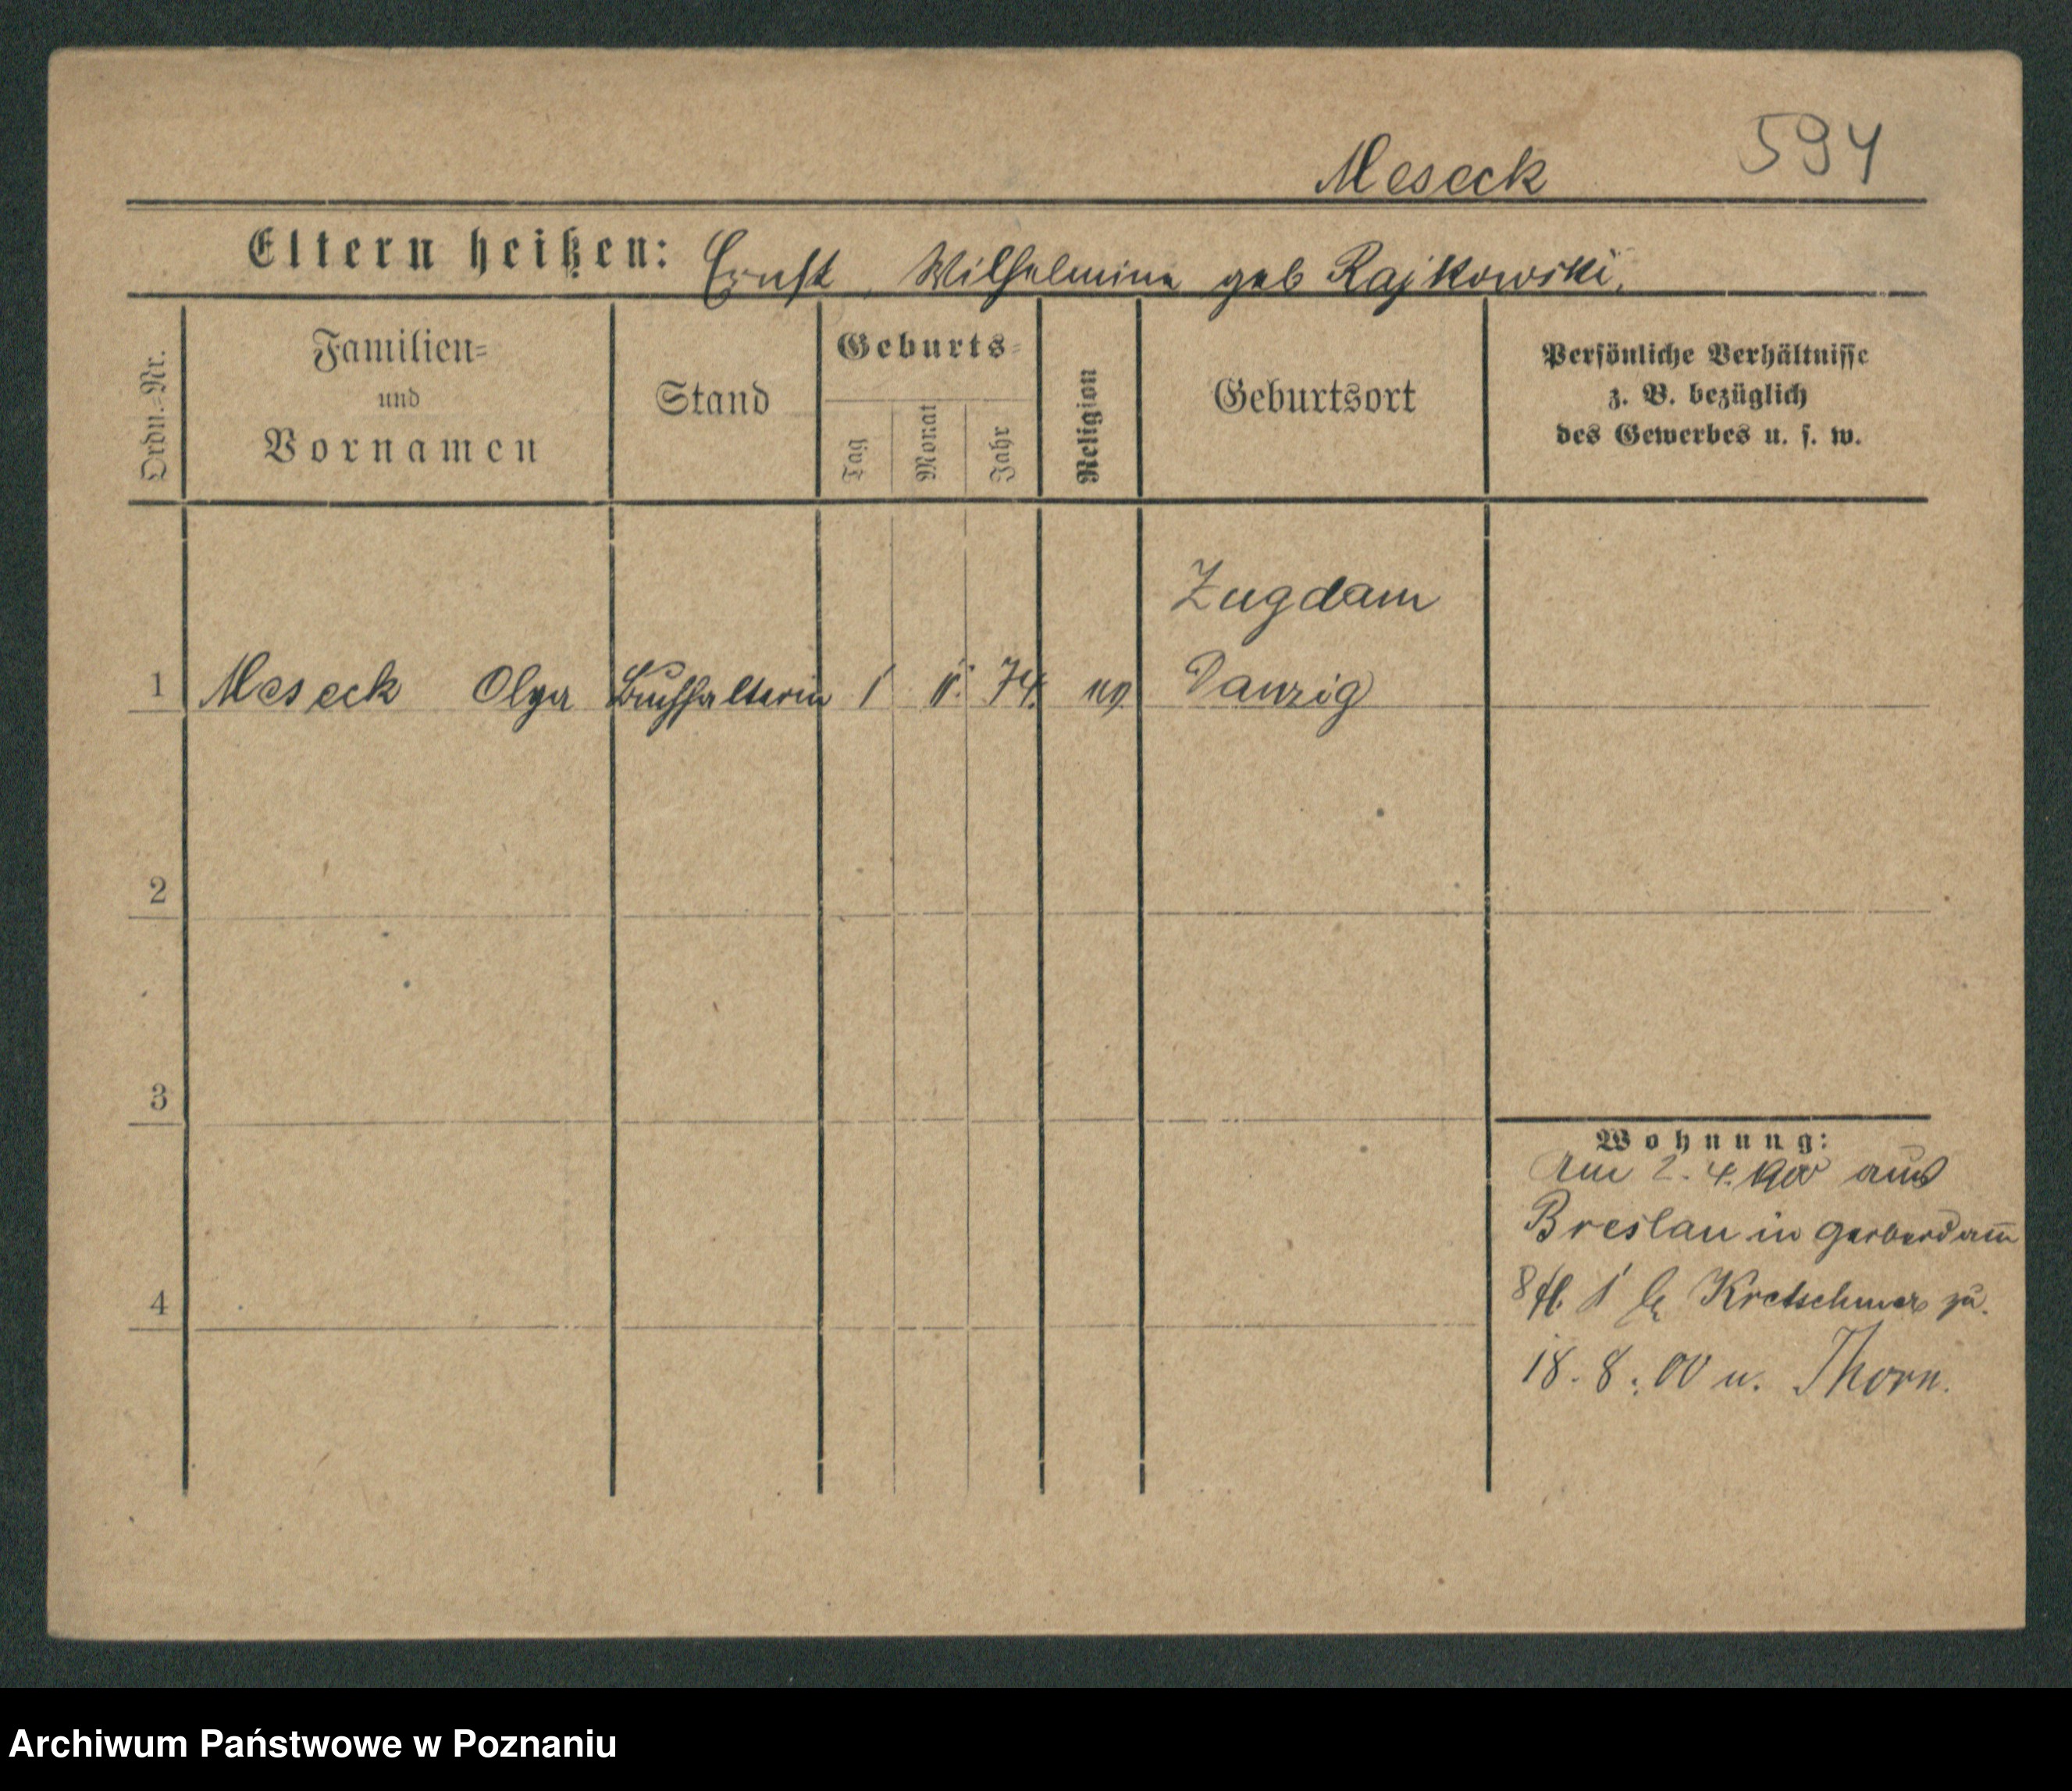 Meseck 594
Eltern heißen: Ernst, Wilhelmine geb Rajkowski.
Ordn.-Nr.
Familien-
und
Vornamen
Stand
Geburts-
Tag
Monat
Jahr
Religion
Geburtsort
Persönliche Verhältnisse
z. B. bezüglich
des Gewerbes u. s. w.
Zugdam
1 Meseck Olga Buchhalterin 1 74. ev. Danzig
2
3
4
Wohnung:
Am 2. 4. 1900 aus
Breslau in Gerberdam̅
8 b Kretschmer zu.
18. 8. 00 n. Thorn.
Archiwum Państwowe w Poznaniu